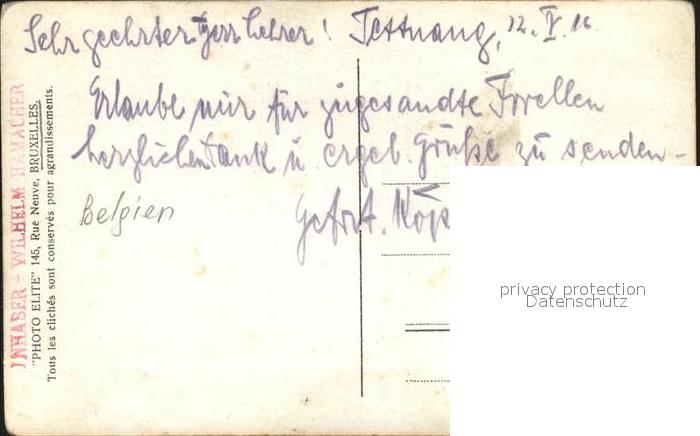 Sehr geehrter Herr Lehrer! Tettnang, 12. V. 16
Erlaube mir für zugesandte Forellen
herzlichen Dank u. ergeb. Grüße zu senden -
Gefrt. Köp
Belgien
INHABER - WILHELM HAMACHER
"PHOTO ELITE" 145, Rue Neuve, BRUXELLES.
Tous les clichés sont conservés pour agrandissements.
privacy protection
Datenschutz